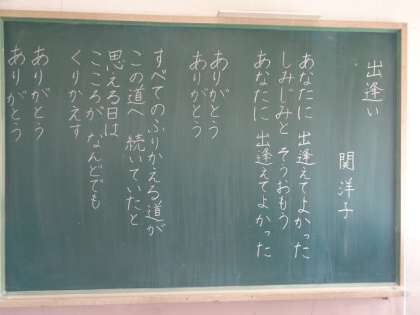 出逢い
関洋子
あなたに 出逢えてよかった
しみじみと そうおもう
あなたに 出逢えてよかった
ありがとう
ありがとう
すべてのふりかえる道が
この道へ 続いていたと
思える日は
こころが なんどでも
くりかえす
ありがとう
ありがとう